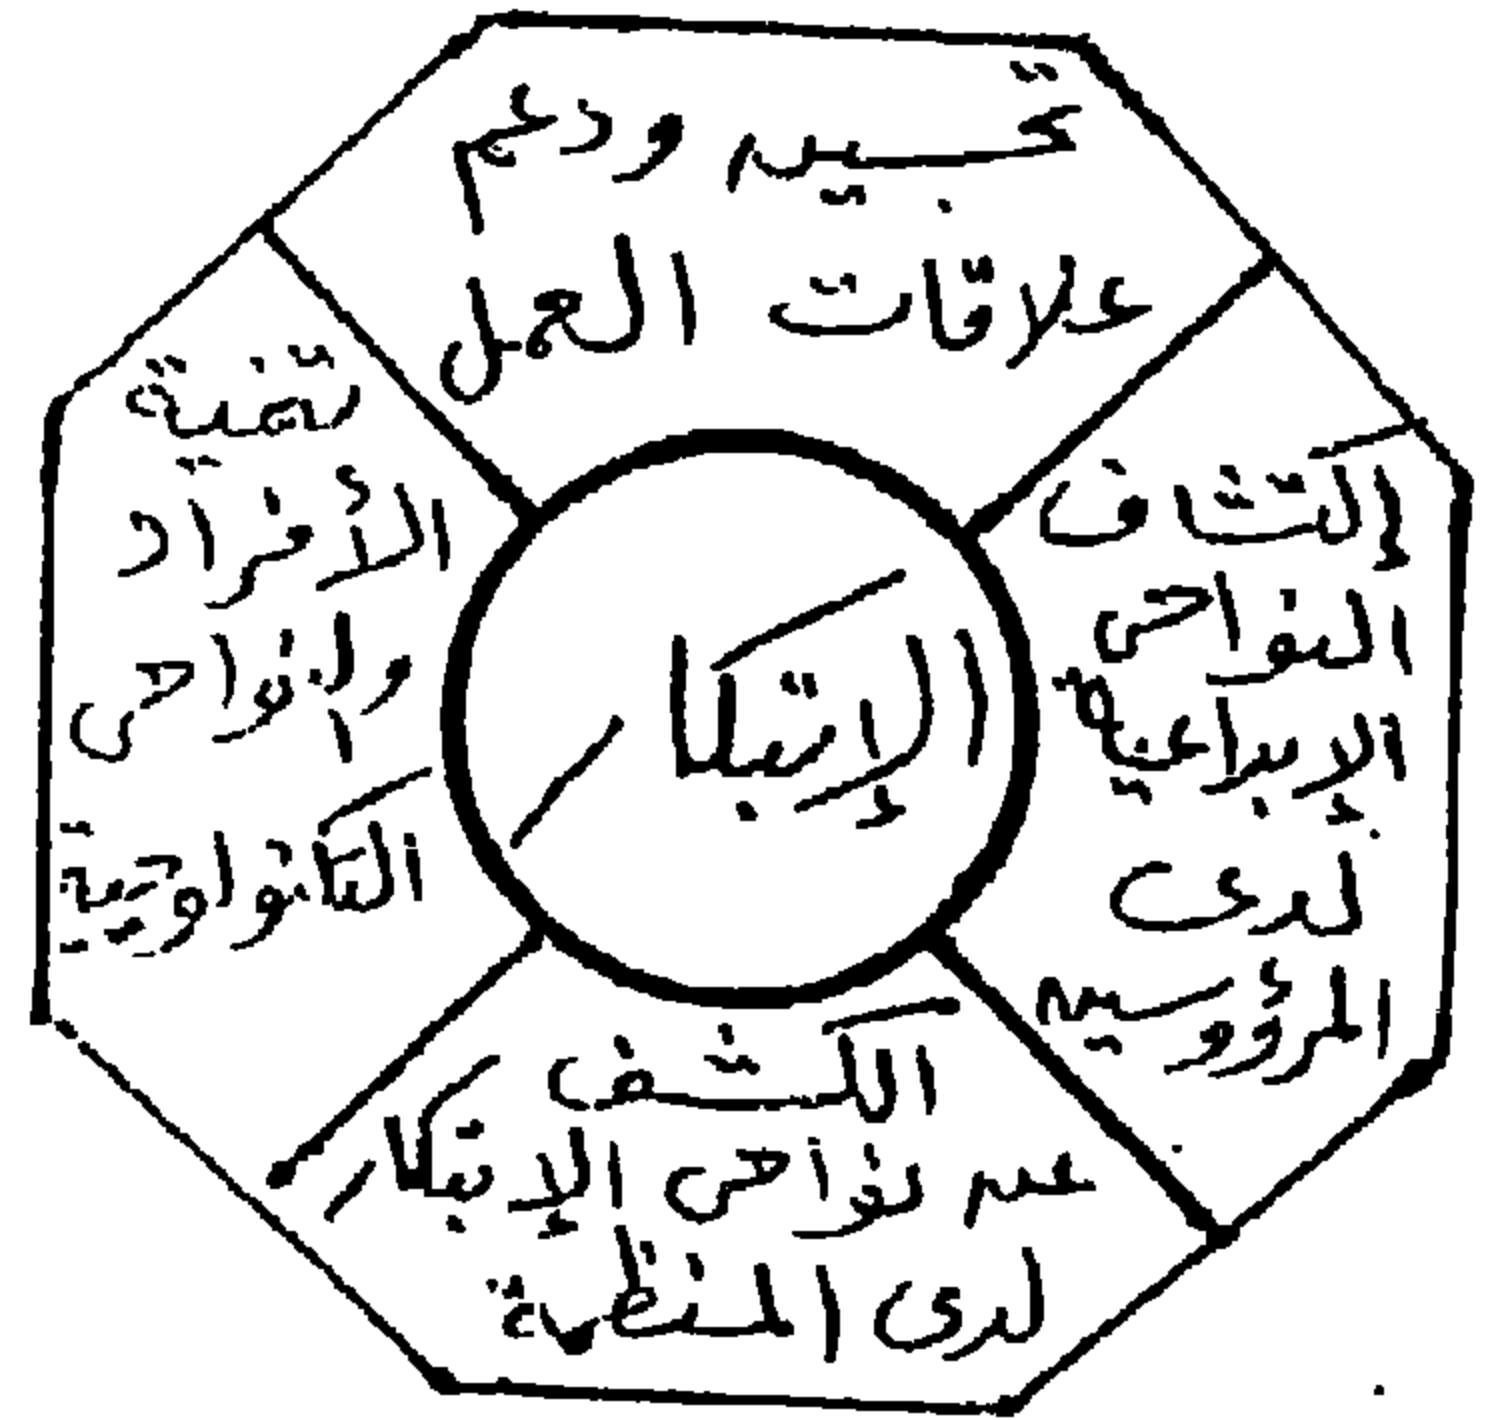 تحسين ودعم
علاقات العمل
إكتشاف
النواحى
الإبداعية
لدى
المرؤوسين
الإبتكار
تنمية
الأفراد
والنواحى
التكنولوجية
الكشف
عن نواحى الإبتكار
لدى المنظمة